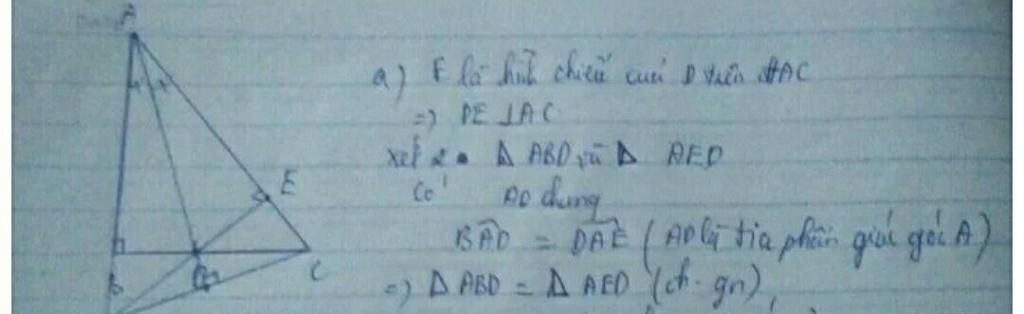 A
a) E là hình chiếu cuả D trên AC
=> DE ⊥ AC
xét Δ ABD và Δ AED
Có AD chung
BAD = DAE (AD là tia phân giác góc A)
=> Δ ABD = Δ AED (ch-gn)
E
B
C